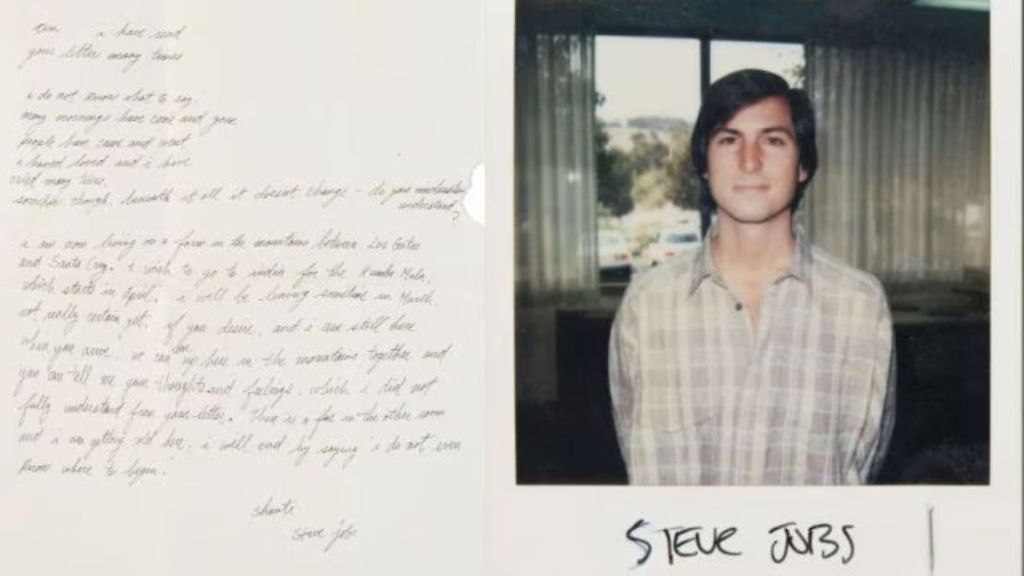 tim i have read
your letter many times
i do not know what to say.
many mornings have come and gone
people have come and went
i haved loved and i have
cried many times.
somehow though, beneath it all it doesnt change - do you
understand?
i am now living on a farm in the mountains between Los Gatos
and Santa Cruz. i wish to go to india for the Kumba Mela,
which starts in April. i will be leaving sometime in March,
not really certain yet. if you desire, and i am still here
when you arive, we can be here in the mountains together and
you can tell me your thoughts and feelings, which i did not
fully understand from your letter. There is a fire in the other room
and i am getting cold here. i will end by saying i do not even
know where to begin.
shanti
steve jobs
STEVE JOBS